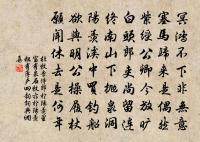 冥鴻不下非無意
塞馬歸來是偶然
紫綬公卿今放曠
白頭郎吏尚留連
終南山下拋泉洞
陽羨溪中買釣船
欲與明公操履杖
願聞休去是何年